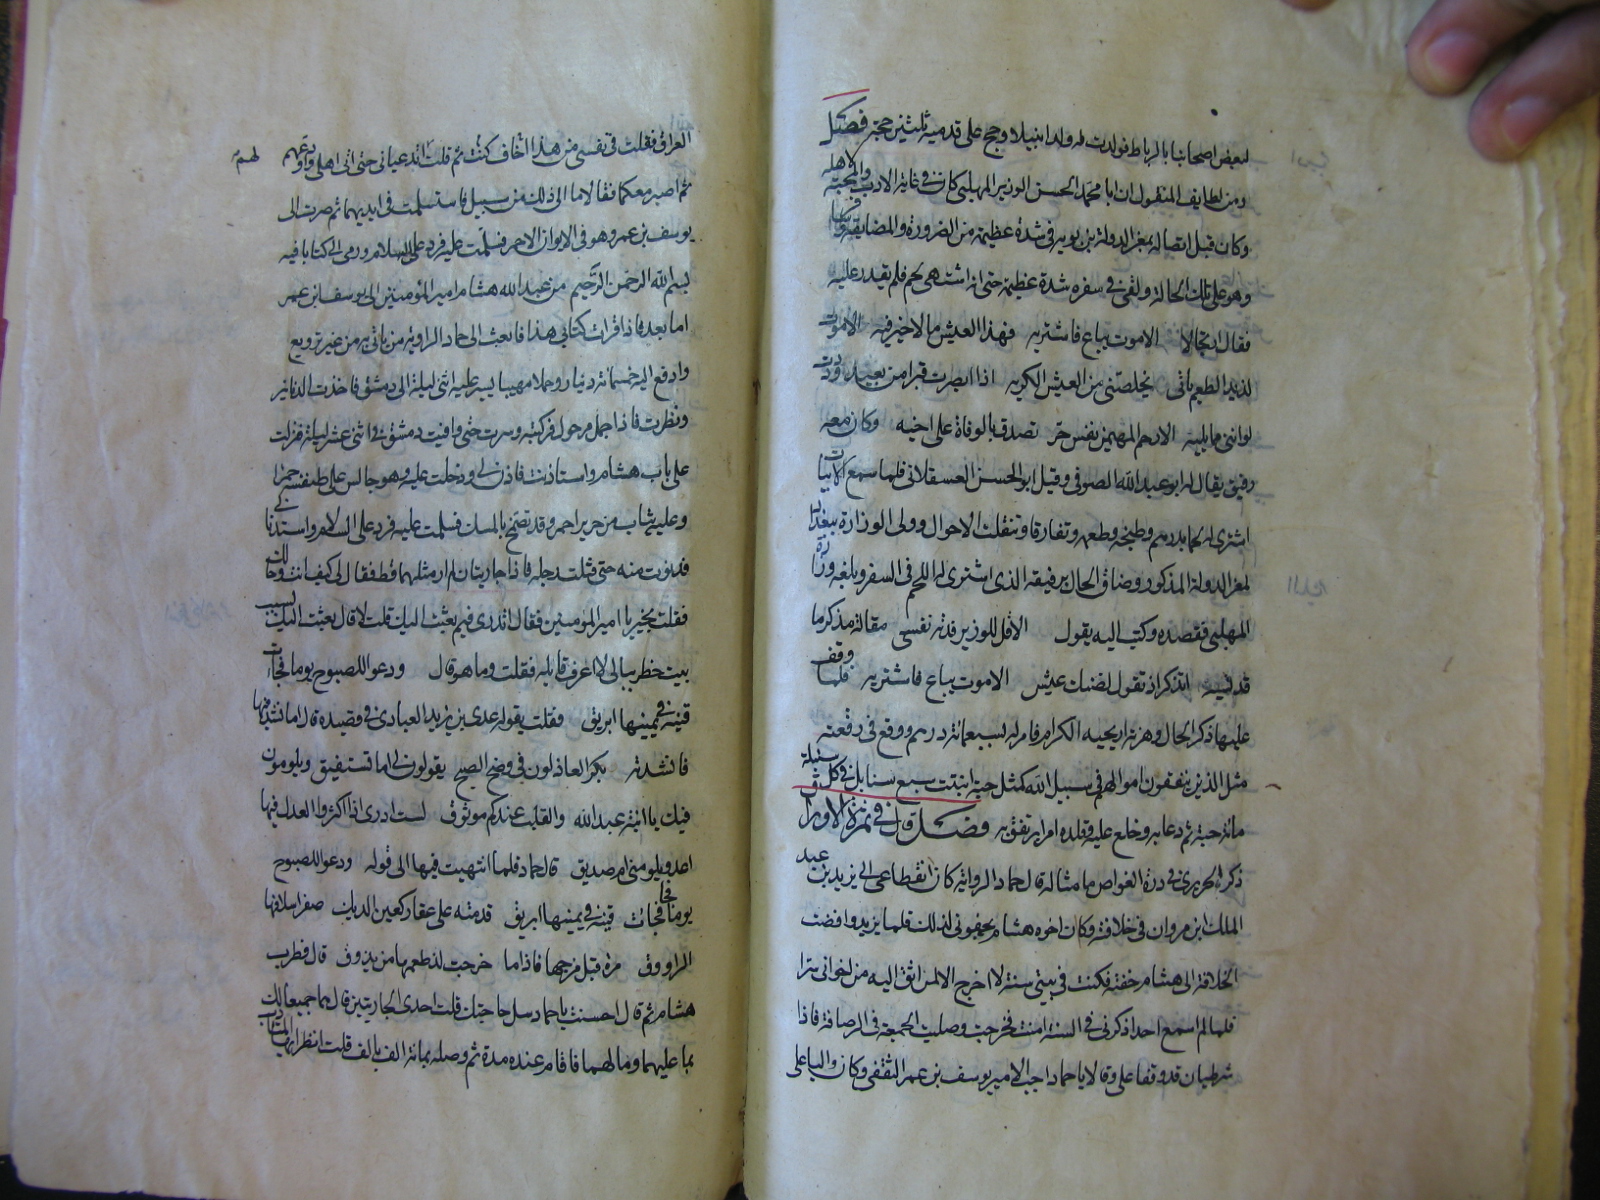 لبعض اصحابنا بالرباط فولدت له ولدا نبيلا وحج على قدميه ثلثين حجة فصل
ومن لطايف المنقول ان ابا محمد الحسن الوزير المهلبي كان في غاية الادب والمحبة لاهله
وكان قبل اتصاله بمعز الدولة بن بويه في شدة عظيمة من الضرورة والمضايقة
وهو على تلك الحالة ولقى في سفره شدة عظيمة حتى انه اشتهى لحم فلم يقدر عليه
فقال ارتجالا الاموت يباع فاشتريه فهذا العيش ما لا خير فيه الاموت
لذيذ الطعم ياتى يخلصنى من العيش الكريه اذا ابصرت قبرا من بعيد وددت
لو اننى مما يليه الا رحم المهيمن نفس حر تصدق بالوفاة على اخيه وكان معه
رفيق يقال له ابو عبد الله الصوفى وقيل ابو الحسن العسقلانى فلما سمع الابيات
اشترى له لحما بدرهم وطبخه وطعمه وتفارقا وتنقلت الاحوال وولى الوزارة ببغداد
لمعز الدولة المذكور وضاق الحال برفيقه الذى اشترى له اللحم فى السفر وبلغه وزارة
المهلبى فقصده وكتب اليه يقول الا قل للوزير فدته نفسى مقالة مذكر ما
قد نسيه اتذكر اذ تقول لضنك عيش الاموت يباع فاشتريه فلما وقف
عليها ذكر الحال وهزته اريحية الكرام فامر له بسبعمائة درهم ووقع فى رقعته
مثل الذين ينفقون اموالهم فى سبيل الله كمثل حبة انبتت سبع سنابل فى كل سنبلة
مائة حبة ثم دعا به وخلع عليه وقلده امرا يرتفق به فصل قال فى ثمرة الاوراق
ذكر الحريرى فى درة الغواص ما مثاله قال حماد الراوية كان انقطاعى الى يزيد بن عبد
الملك ابن مروان فى خلافته وكان اخوه هشام يجفونى لذلك فلما يزيد وافضت
الخلافة الى هشام خفته فكنت فى بيتى سنة لا اخرج الا لمن اثق اليه من اخوانى سرا
فلما لم اسمع احدا ذكرنى فى السنة امنت فخرجت وصليت الجمعة فى الرصافة فاذا
شرطيان قد وقفا على وقالا يا حماد اجب الامير يوسف بن عمر الثقفى وكان واليا على
العراق فقلت فى نفسى من هذا اخاف كنت ثم قلت اتدعيانى حتى اتى اهلى واودعهم
ثم اصير معكما فقالا ما الى ذلك من سبيل فاستسلمت فى ايديهما ثم صرت الى
يوسف بن عمر وهو فى الايوان الاحمر فسلمت عليه فرد على السلام ورمى الى كتابا فيه
بسم الله الرحمن الرحيم من عبد الله هشام امير المؤمنين الى يوسف ابن عمر
اما بعد فاذا قرات كتابى هذا فابعث الى حماد الراوية من ياتى به من غير ترويع
وادفع اليه خمسمائة دينار وجملا مهيبا يسير عليه اثنى ليلة الى دمشق فاخذت الدنانير
ونظرت فاذا جمل مرحول فركبته وسرت حتى وافيت دمشق فى اثنى عشر ليلة فنزلت
على باب هشام واستاذنت فاذن لى ودخلت عليه وهو جالس على طنفسة حمرا
وعليه ثياب من حرير احمر وقد تضمخ بالمسك فسلمت عليه فرد على السلام واستدنانى
فدنوت منه حتى قبلت رجله فاذا جاريتان لم ار مثلهما قط فقال لى كيف انت وحالك
فقلت بخير يا امير المؤمنين فقال اتدرى فيم بعثت اليك قلت لا قال بعثت اليك بسبب
بيت خطر ببالى لا اعرف قايله فقلت وما هو قال ودعوا للصبوح يوما فجات
قينة فى يمينها ابريق فقلت يقوله عدى بن زيد العبادى فى قصيدة قال
فانشدته بكر العاذلون فى وضح الصبح يقولون لى اما تستفيق ويلومون
فيك يا ابنة عبد الله والقلب عندكم موثوق لست ادرى اذا اكثروا العذل فيها
اعدو يلومنى ام صديق قال حماد فلما انتهيت فيها الى قوله ودعوا للصبوح
يوما فجات قينة فى يمينها ابريق قدمته على عقار كعين الديك صفى سلافها
الراووق مرة قبل مزجها فاذا ما خرجت لذ طعمها من يذوق قال فطرب
هشام ثم قال احسنت يا حماد سل حاجتك قلت احدى الجاريتين قال هما جميعا لك
بما عليهما وما لهما فاقام عنده مدة ثم وصله بمائة الف قلت انظر